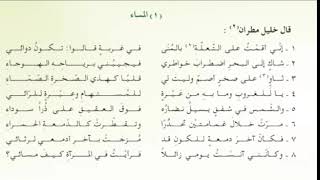 (١) المساء
قال خليل مطران(٢):
١ ـ إني أقمتُ على التَّعلَّة(١) بالمُنَى في غربةٍ قالوا: تكونُ دوائي
٢ ـ شاكٍ إلى البحرِ اضطرابَ خواطري فيجيبُني برياحه الهوجاءِ
٣ ـ ثاوٍ(٢) على صخرٍ أصمَّ وليت لي قلبًا كهذي الصَّخرة الصَّمَّاءِ
٤ ـ يا للغروبِ وما به من عبرةٍ للمستهامِ وعبرةٍ للرائي
٥ ـ والشمسُ في شفقٍ يسيلُ نضارُه فوقَ العقيقِ على ذُراً سوداءِ
٦ ـ مرَّت خلالَ غمامتينِ تحدُّرًا وتقطَّرت كالدَّمعةِ الحمراءِ
٧ ـ فكأنَّ آخرَ دمعةٍ للكونِ قد مُزجَتْ بآخرِ أدمعي لرثائي
٨ ـ وكأنَّني آنستُ يومي زائلاً فرأيتُ في المرآةِ كيف مسائي؟